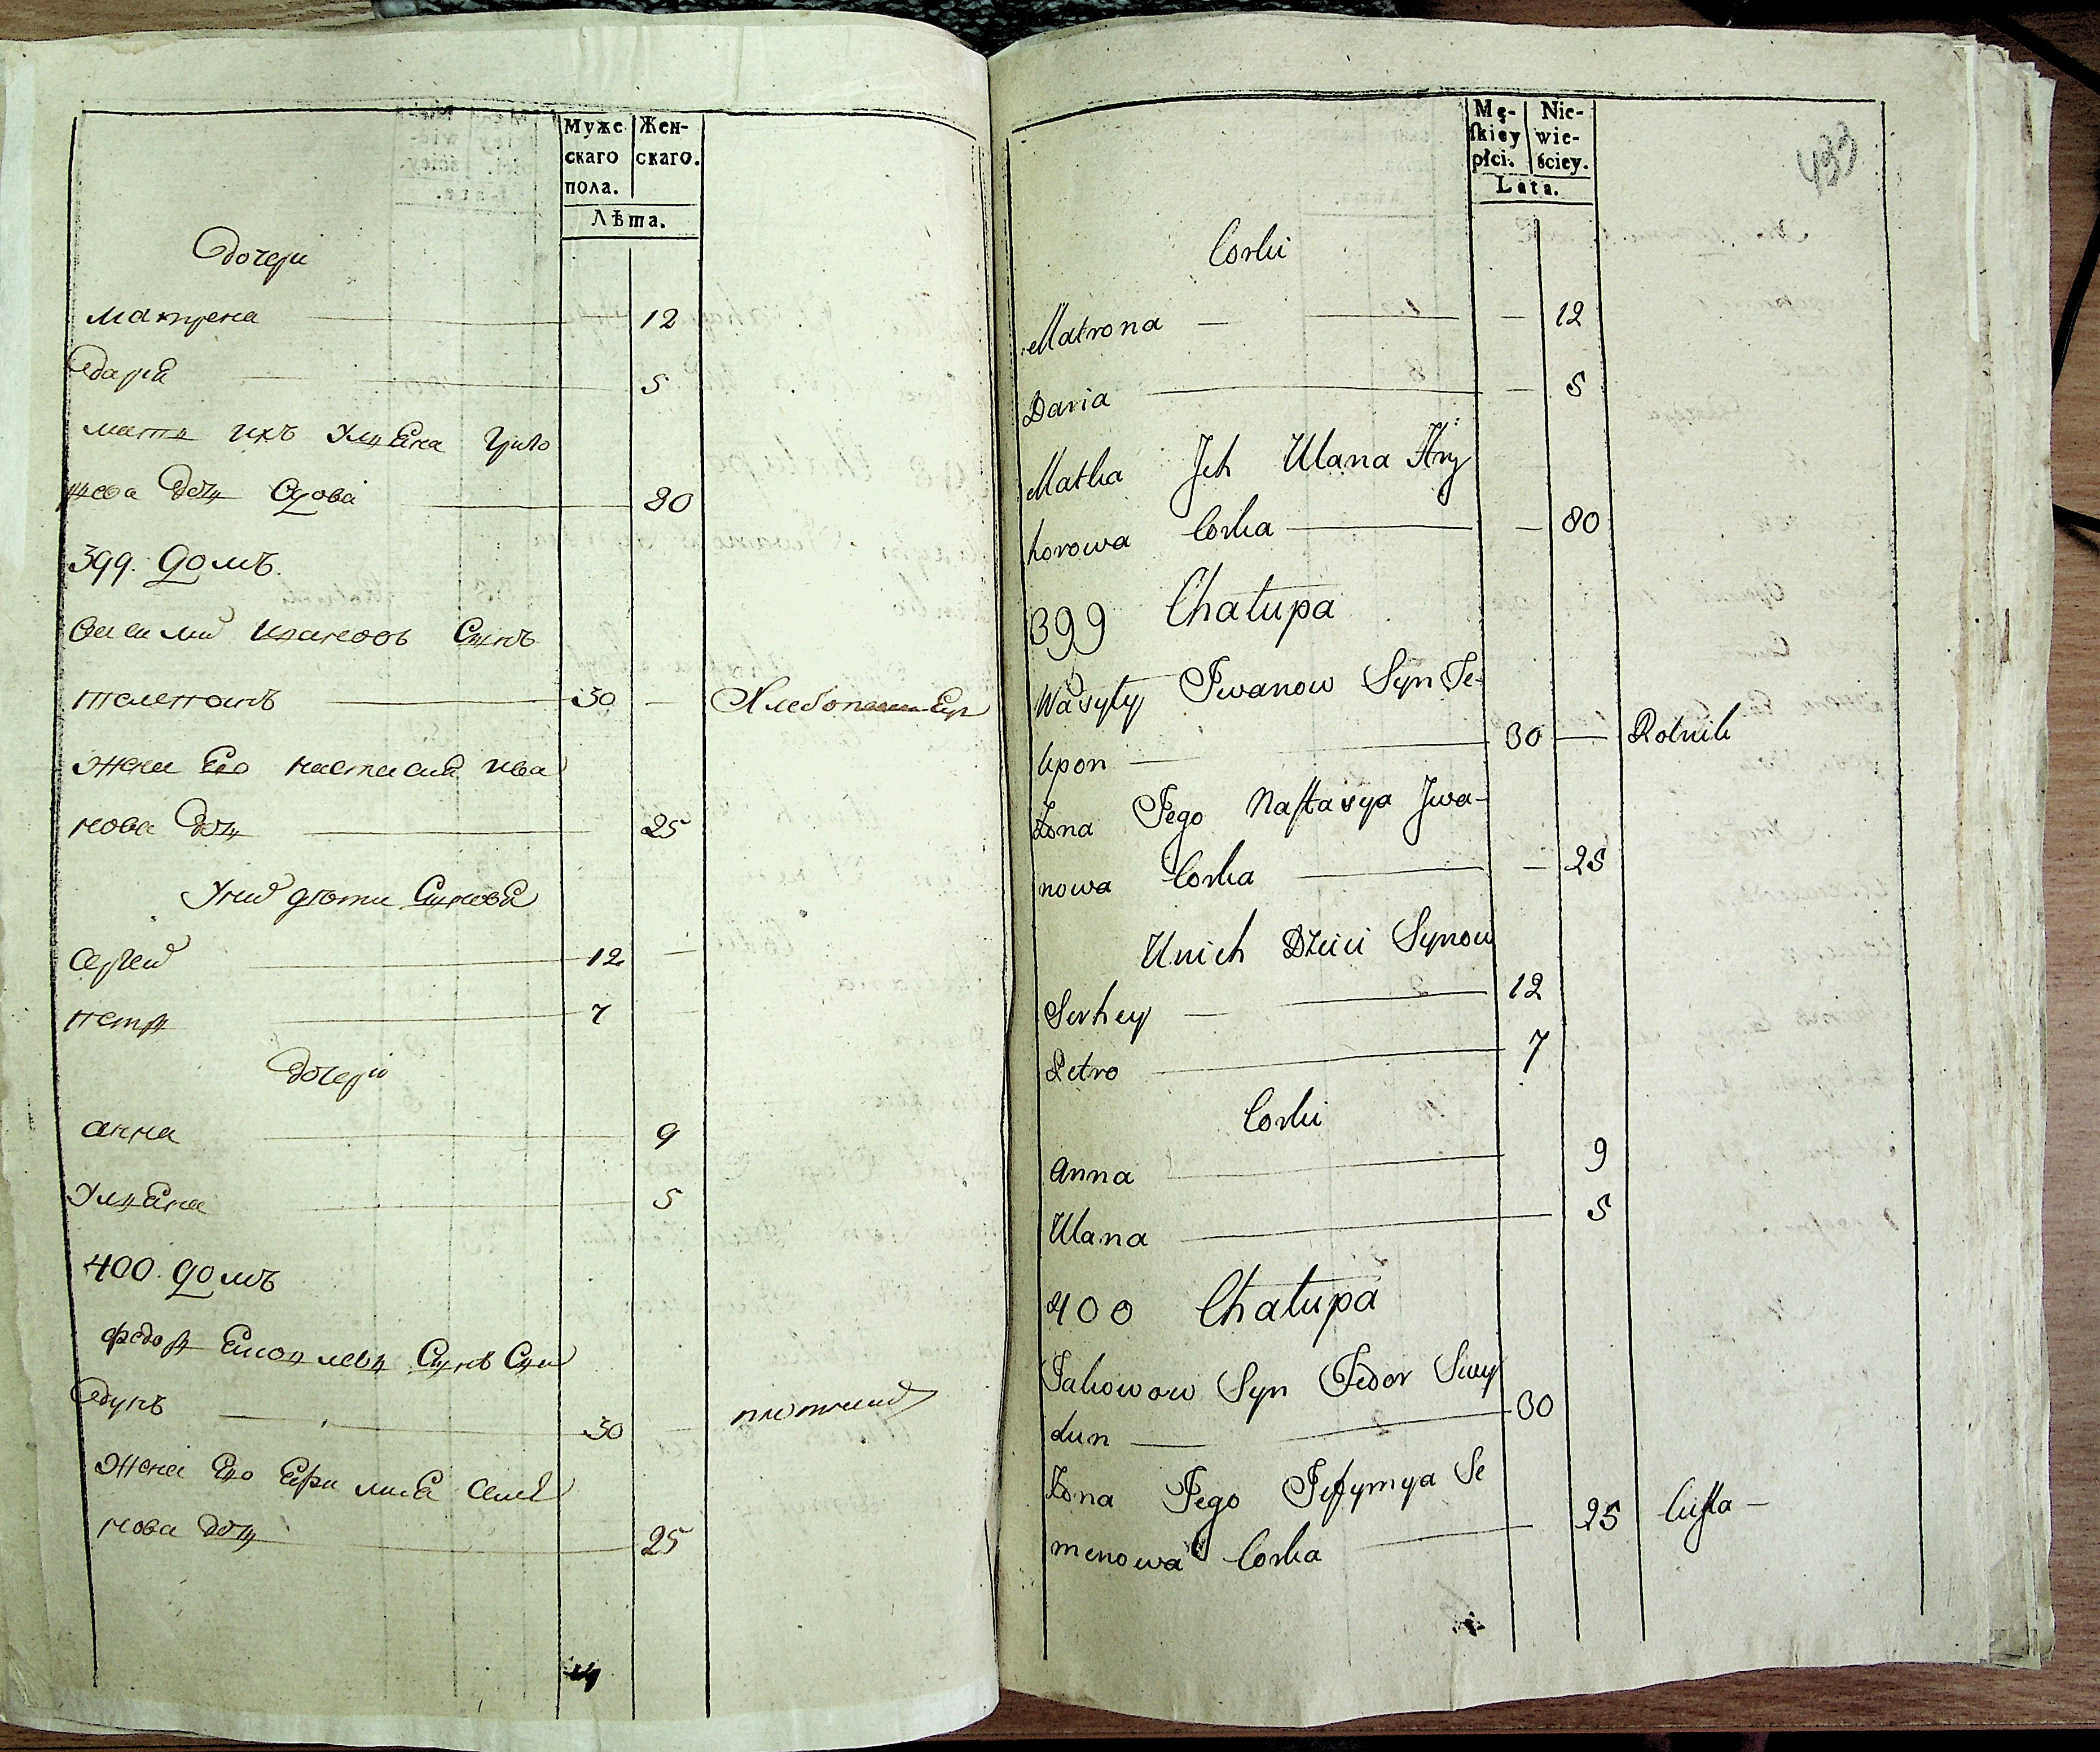 Муже
скаго
пола.
Жен-
скаго.
Лѣта.
дочери
матрена 12
Дария 5
мать ихъ Ульяна Григо
рьева дочь вдова 80
399. домъ.
василий Ивановъ Сынъ
30 Хлебопашец
Жена Его настасия Ива
нова дочь 25
У них дѣти Сыновя
Сергей 12
петръ 7
дочери
анна 9
Ульяна 5
400. домъ
федоръ Сынъ Сви
дунъ 30
Жена Его Ефимия Семе
нова дочь 25
Mę-
skiey
płci.
Nie-
wie-
ściey.
Lata.
433
Corki
Matrona 12
Daria 5
Matka Jch Ulana Hry
horowa Corka 80
399 Chałupa
Wasyly Jwanow Syn Te-
lipon 30 Rolnik
Żona Jego Nastasya Jwa-
nowa Corka 25
Unich Dzieci Synow
Serhey 12
Petro 7
Corki
Anna 9
Ulana 5
400 Chałupa
Jakowow Syn Fedor Swy
dun 30
Żona Jego Jefymya Se
menowa Corka 25